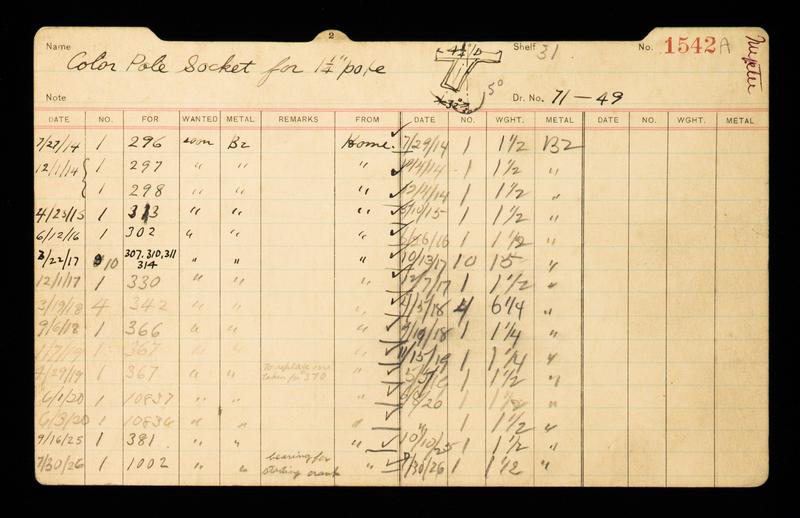 2
Name Color Pole Socket for 1¼" pole Shelf 31 No. 1542A
4½"D
5°
Note Dr. No. 71-49
DATE NO. FOR WANTED METAL REMARKS FROM DATE NO. WGHT. METAL DATE NO. WGHT. METAL
7/27/14 1 296 soon Bz Home. ✓ 7/29/14 1 1½ Bz
12/1/14 { 1 297 " " " ✓ 1 1½ "
1 298 " " " ✓ 12/4/14 1 1½ "
4/23/15 1 313 " " " ✓ 1 1½ "
6/12/16 1 302 " " " ✓ 1 1½ "
3/22/17 10 307, 310, 311 314 " " " ✓ 10/13/17 10 15 "
12/1/17 1 330 " " " ✓ 12/7/17 1 1½ "
3/19/18 4 342 " " " ✓ 4/5/18 4 6¼ "
9/6/18 1 366 " " " ✓ 1 1¼ "
1/7/19 1 367 " " " ✓ 1 1¼ "
4/29/19 1 367 " " To replace one taken for 370 " ✓ 5/5/19 1 1½ "
6/1/20 1 10837 " " " ✓ 6/8/20 1 1½ "
6/3/20 1 10836 " " ✓ " 1 1½ "
9/16/25 1 381 " " " ✓ 10/10/25 1 1½ "
7/30/26 1 1002 " " bearing for starting crank " ✓ 7/30/26 1 1½ "